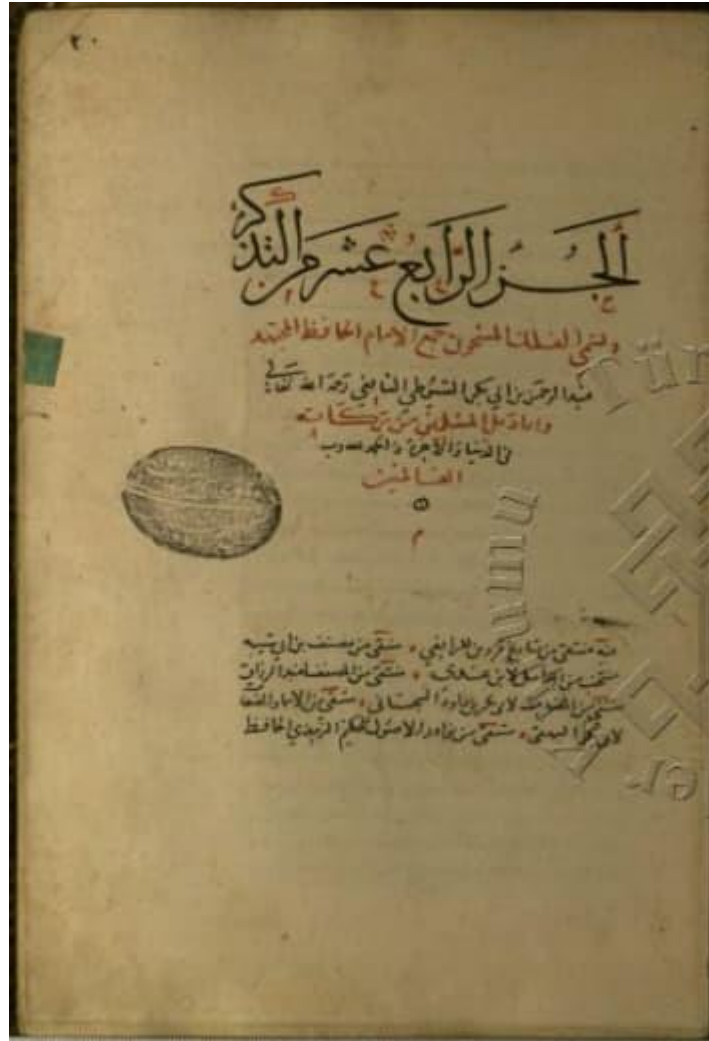 ٢٠
الجزء الرابع عشر من التذكرة
وتسمى الفلك المشحون جمع الامام الحافظ المجتهد
عبد الرحمن بن ابي بكر السيوطي الشافعي رحمه الله تعالى
واعاد على المسلمين من بركاته
في الدنيا والاخرة والحمد لله رب
العالمين
م
فيه منتقى من تاريخ قزوين للرافعي منتقى من مصنف بن ابي شيبه
منتخب من الكامل لابن عدى منتقى من المصنف لعبد الرزاق
لابي بكر بن داود منتقى من الاسما والصفا
لابي بكر البيهقى منتقى من نوادر الاصول للحكيم الترمذي الحافظ
Tür
er